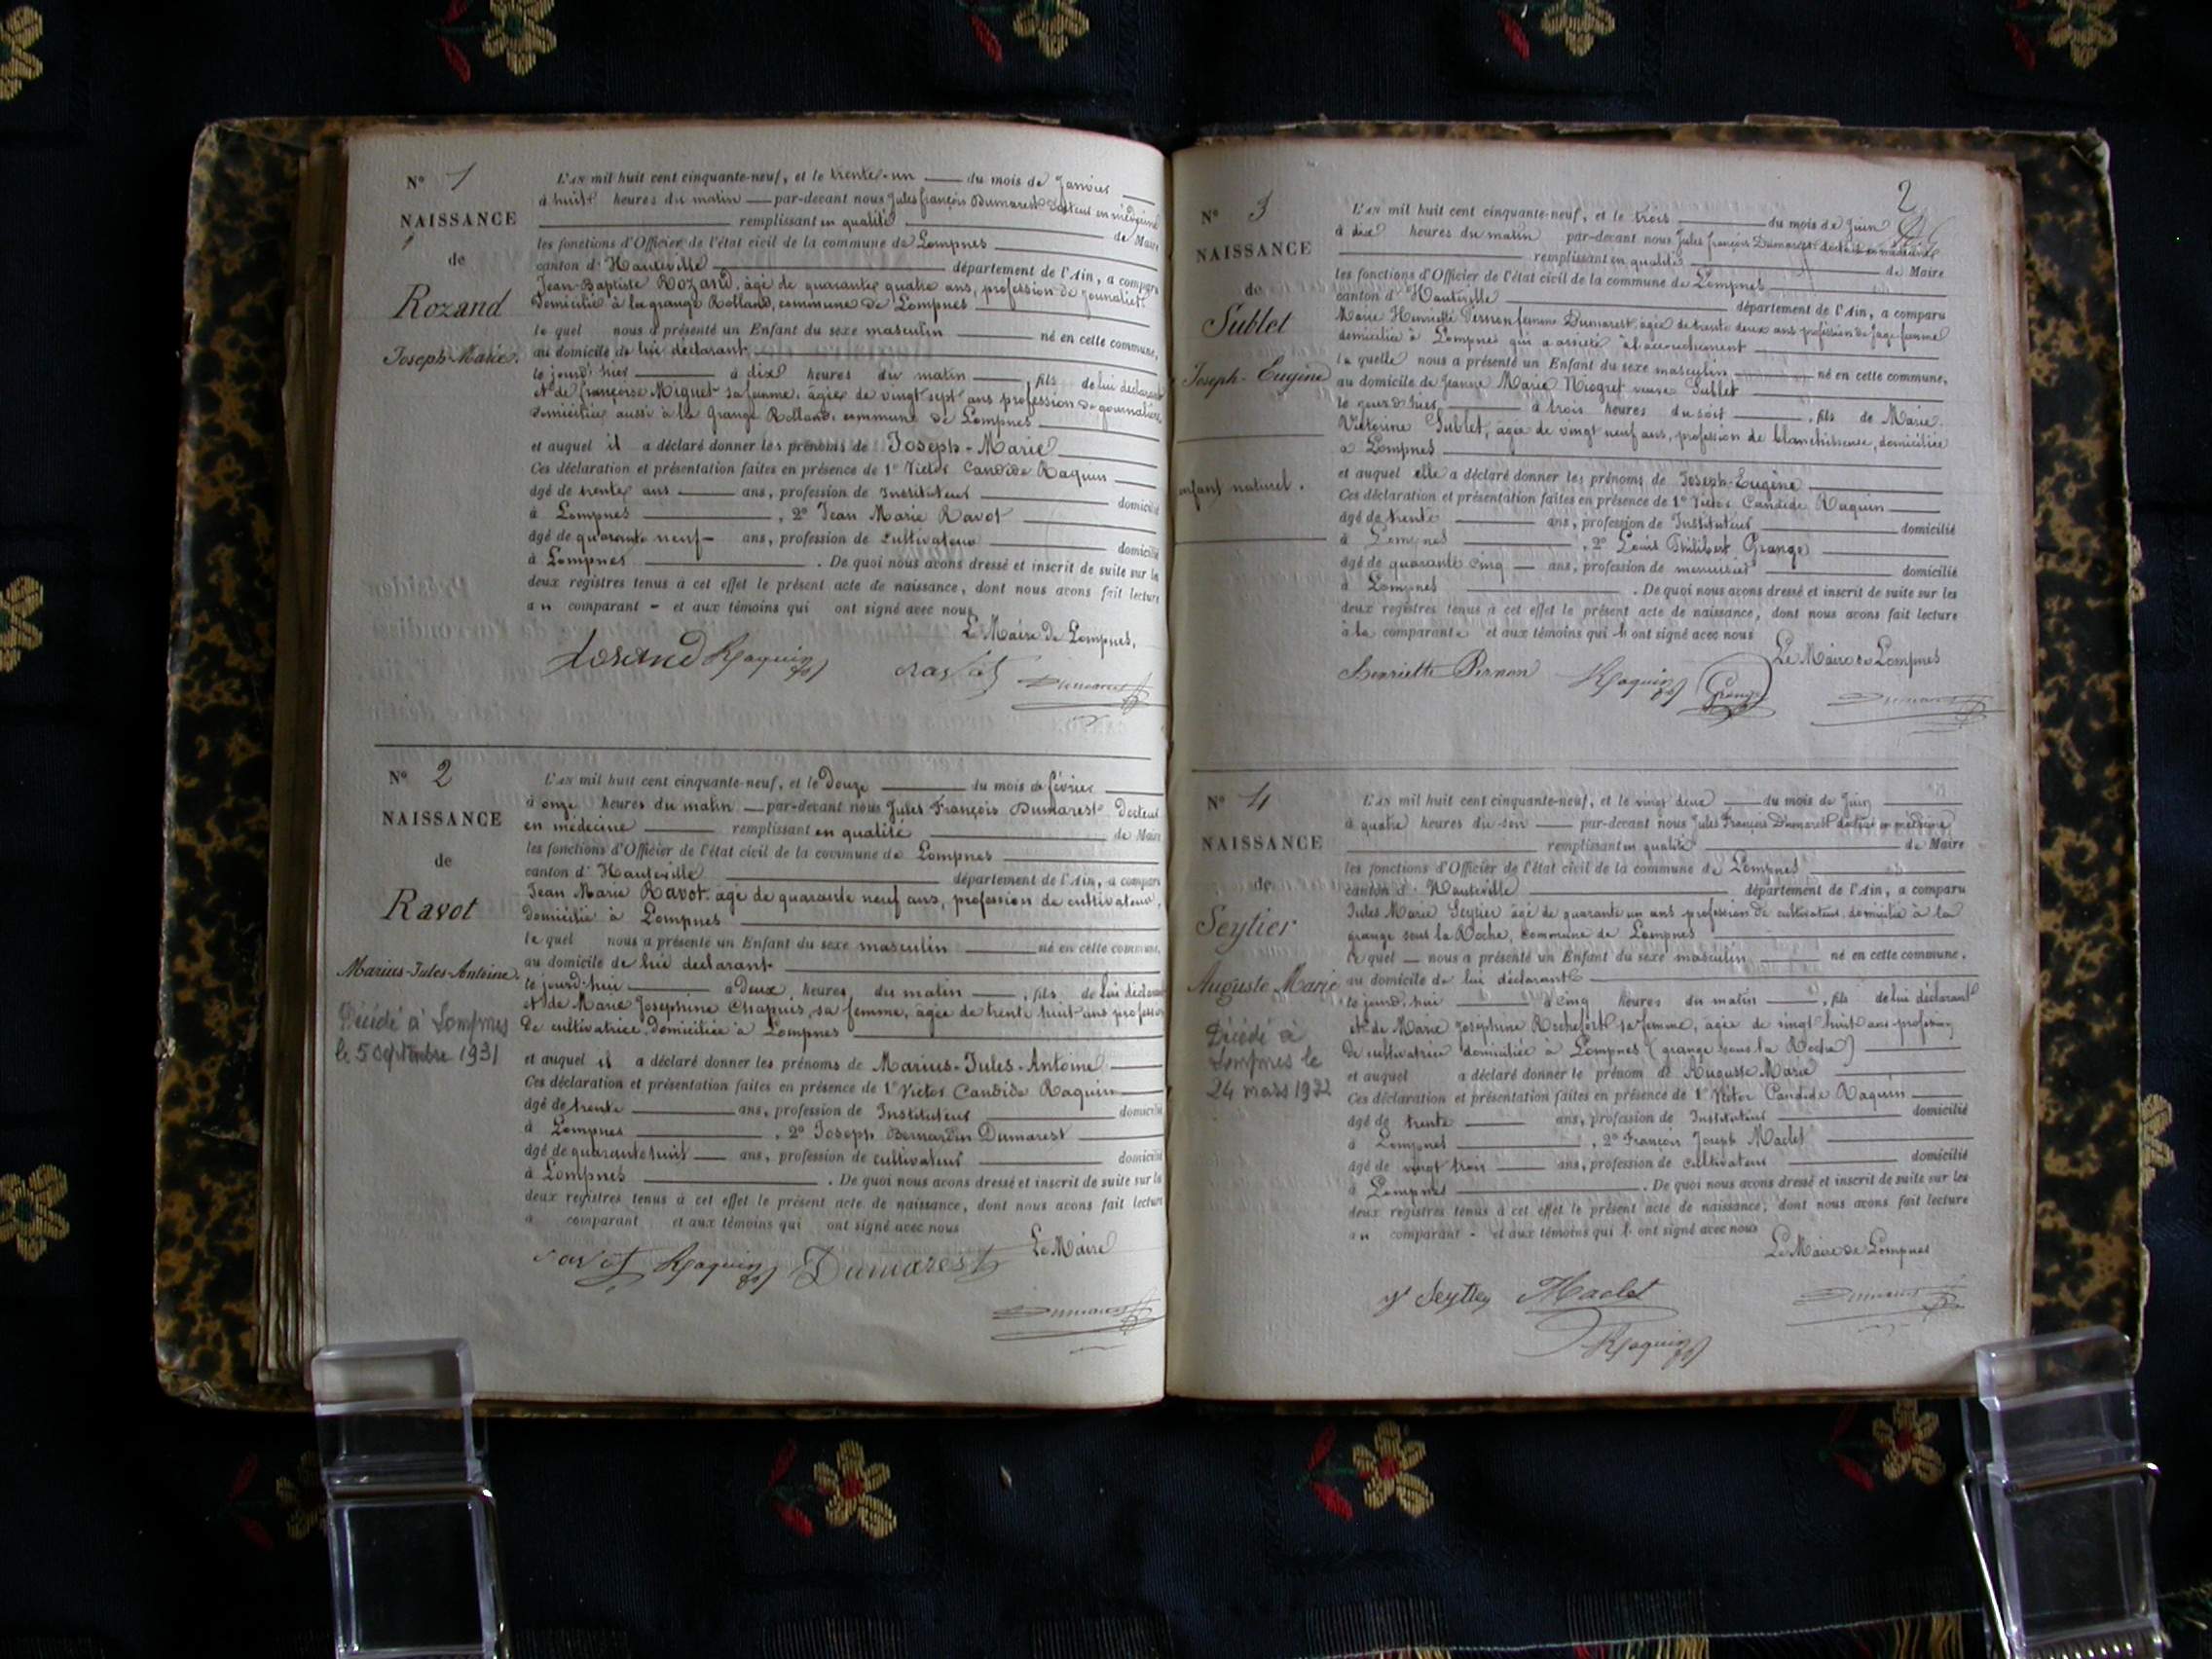 N° 1
NAISSANCE
de
Rozand
Joseph-Marie.
L'AN mil huit cent cinquante-neuf, et le trente-un du mois de Janvier
à huit heures du matin par-devant nous Jules françois Dumarest Docteur en médecine
remplissant en qualité de Maire
les fonctions d'Officier de l'état civil de la commune de Lompnes
canton d' Hauteville département de l'Ain, a comparu
Jean-Baptiste Rozand, âgé de quarante quatre ans, profession de journalier
domicilié à la grange Rolland, commune de Lompnes
le quel nous a présenté un Enfant du sexe masculin né en cette commune,
au domicile de lui déclarant,
le jourd'hier à dix heures du matin , fils de lui déclarant
et de françoise Miguet sa femme, âgée de vingt sept ans profession de journalière
domiciliée aussi à la Grange Rolland, commune de Lompnes
et auquel il a déclaré donner les prénoms de Joseph-Marie
Ces déclaration et présentation faites en présence de 1° Victor Candide Raquin
âgé de trente ans ans, profession de Instituteur domicilié
à Lompnes , 2° Jean Marie Ravot
âgé de quarante neuf ans, profession de cultivateur domicilié
à Lompnes . De quoi nous avons dressé et inscrit de suite sur les
deux registres tenus à cet effet le présent acte de naissance, dont nous avons fait lecture
au comparant - et aux témoins qui ont signé avec nous
Le Maire de Lompnes,
Rosand Raquin ravot Dumarest
N° 2
NAISSANCE
de
Ravot
Marius-Jules-Antoine.
Décédé à Lompnes
le 5 septembre 1931
L'AN mil huit cent cinquante-neuf, et le Douze du mois de février
à onze heures du matin par-devant nous Jules François Dumarest Docteur
en médecine remplissant en qualité de Maire
les fonctions d'Officier de l'état civil de la commune de Lompnes
canton d' Hauteville département de l'Ain, a comparu
Jean Marie Ravot âgé de quarante neuf ans, profession de cultivateur,
domicilié à Lompnes
le quel nous a présenté un Enfant du sexe masculin né en cette commune,
au domicile de lui déclarant
le jourd'hui à Deux heures du matin , fils de lui déclarant
et de Marie Josephine Chapuis, sa femme, âgée de trente huit ans profession
de cultivatrice, domiciliée à Lompnes
et auquel il a déclaré donner les prénoms de Marius-Jules-Antoine
Ces déclaration et présentation faites en présence de 1° Victor Candide Raquin
âgé de trente ans, profession de Instituteur domicilié
à Lompnes , 2° Joseph Bernardin Dumarest
âgé de quarante huit ans, profession de cultivateur domicilié
à Lompnes . De quoi nous avons dressé et inscrit de suite sur les
deux registres tenus à cet effet le présent acte de naissance, dont nous avons fait lecture
a comparant et aux témoins qui ont signé avec nous
Le Maire
ravot Raquin Dumarest
Dumarest
2
N° 3
NAISSANCE
de
Sublet
Joseph-Eugène
enfant naturel.
L'AN mil huit cent cinquante-neuf, et le trois du mois de Juin
à dix heures du matin par-devant nous Jules françois Dumarest docteur en médecine
remplissant en qualité de Maire
les fonctions d'Officier de l'état civil de la commune de Lompnes
canton d' Hauteville département de l'Ain, a comparu
Marie Henriette Pernon femme Dumarest, âgée de trente deux ans profession de sage femme
domiciliée à Lompnes qui a assisté à l'accouchement
la quelle nous a présenté un Enfant du sexe masculin né en cette commune,
au domicile de Jeanne Marie Niogret veuve Sublet
le jourd'hier à trois heures du soir , fils de Marie
Victorine Sublet, âgée de vingt neuf ans, profession de blanchisseuse, domiciliée
à Lompnes
et auquel elle a déclaré donner les prénoms de Joseph-Eugène
Ces déclaration et présentation faites en présence de 1° Victor Candide Raquin
âgé de trente ans, profession de Instituteur domicilié
à Lompnes , 2° Louis Philibert Grange
âgé de quarante cinq ans, profession de menuisier domicilié
à Lompnes . De quoi nous avons dressé et inscrit de suite sur les
deux registres tenus à cet effet le présent acte de naissance, dont nous avons fait lecture
à la comparante et aux témoins qui ont signé avec nous
Le Maire de Lompnes
Henriette Pernon Raquin Grange Dumarest
N° 4
NAISSANCE
de
Seytier
Auguste Marie
Décédé à
Lompnes le
24 mars 1932
L'AN mil huit cent cinquante-neuf, et le vingt deux du mois de Juin
à quatre heures du soir par-devant nous Jules François Dumarest docteur en médecine
remplissant en qualité de Maire
les fonctions d'Officier de l'état civil de la commune de Lompnes
canton d' Hauteville département de l'Ain, a comparu
Jules Marie Seytier âgé de quarante un ans profession de cultivateur, domicilié à la
grange sous la Roche, commune de Lompnes
le quel nous a présenté un Enfant du sexe masculin né en cette commune,
au domicile de lui déclarant
le jourd'hui à cinq heures du matin , fils de lui déclarant
et de Marie Josephine Rochefort sa femme, âgée de vingt huit ans profession
de cultivatrice domiciliée à Lompnes (grange sous la Roche)
et auquel a déclaré donner le prénom de Auguste Marie
Ces déclaration et présentation faites en présence de 1° Victor Candide Raquin
âgé de trente ans, profession de Instituteur domicilié
à Lompnes , 2° François Joseph Maclet
âgé de vingt trois ans, profession de cultivateur domicilié
à Lompnes . De quoi nous avons dressé et inscrit de suite sur les
deux registres tenus à cet effet le présent acte de naissance, dont nous avons fait lecture
au comparant - et aux témoins qui ont signé avec nous
Le Maire de Lompnes
Seytier Maclet Dumarest
Raquin